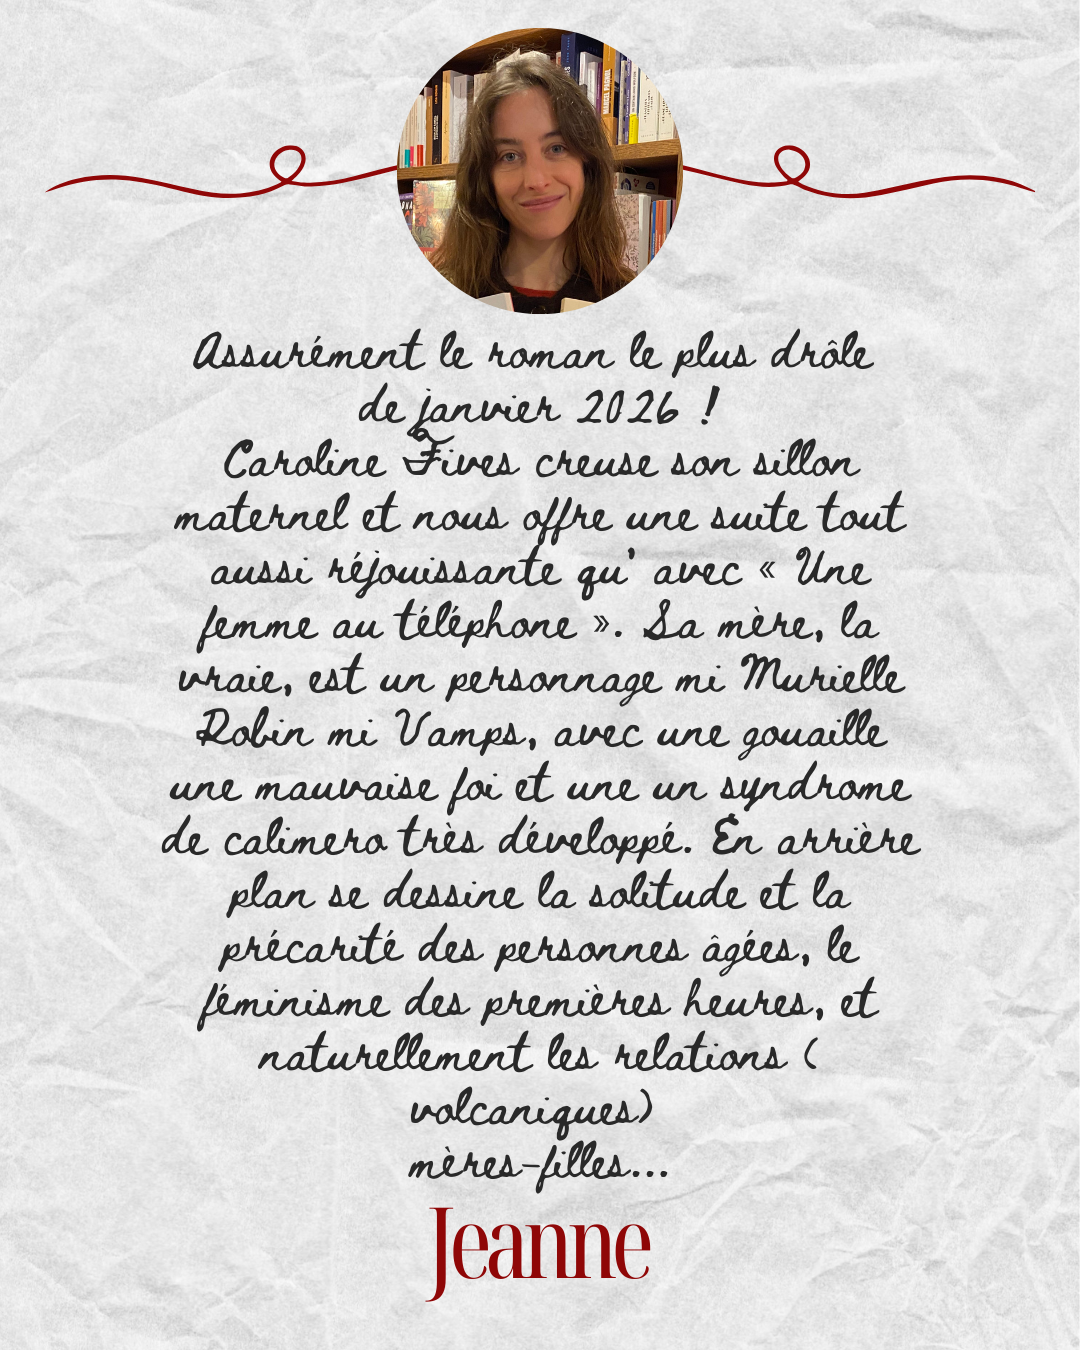 MARCEL PAGNOL
Assurément le roman le plus drôle
de janvier 2026 !
Caroline Fives creuse son sillon
maternel et nous offre une suite tout
aussi réjouissante qu' avec « Une
femme au téléphone ». Sa mère, la
vraie, est un personnage mi Murielle
Robin mi Vamps, avec une gouaille
une mauvaise foi et une un syndrome
de calimero très développé. En arrière
plan se dessine la solitude et la
précarité des personnes âgées, le
féminisme des premières heures, et
naturellement les relations (
volcaniques)
mères-filles...
Jeanne